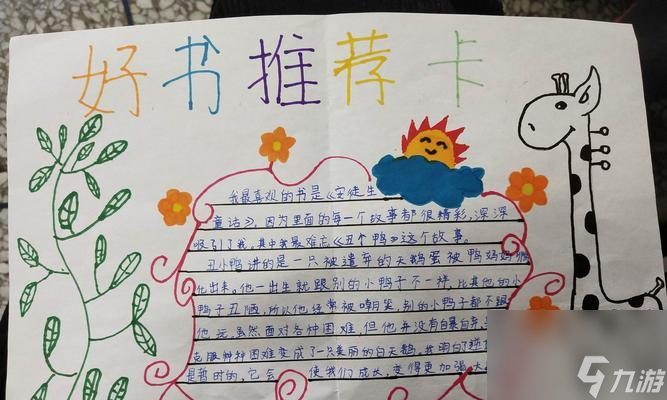 好书推荐卡
我最喜欢的书是《安徒生
童话》，因为里面的每一个故事都很精彩，深深
吸引了我，其中我最难忘《丑小鸭》这个故事。
丑小鸭讲的是一只被遗弃的天鹅蛋被鸭妈妈孵
化出来。他一出生就跟别的小鸭子不一样，比其他的小
鸭子丑陋，所以他经常被嘲笑，别的小鸭子都不跟
他玩，虽然面对各种困难，但他并没有自暴自弃，
克服种种困难变成了一只美丽的白天鹅，我明白了
是暂时的，它会 使我们成长，变得更加强大
九游